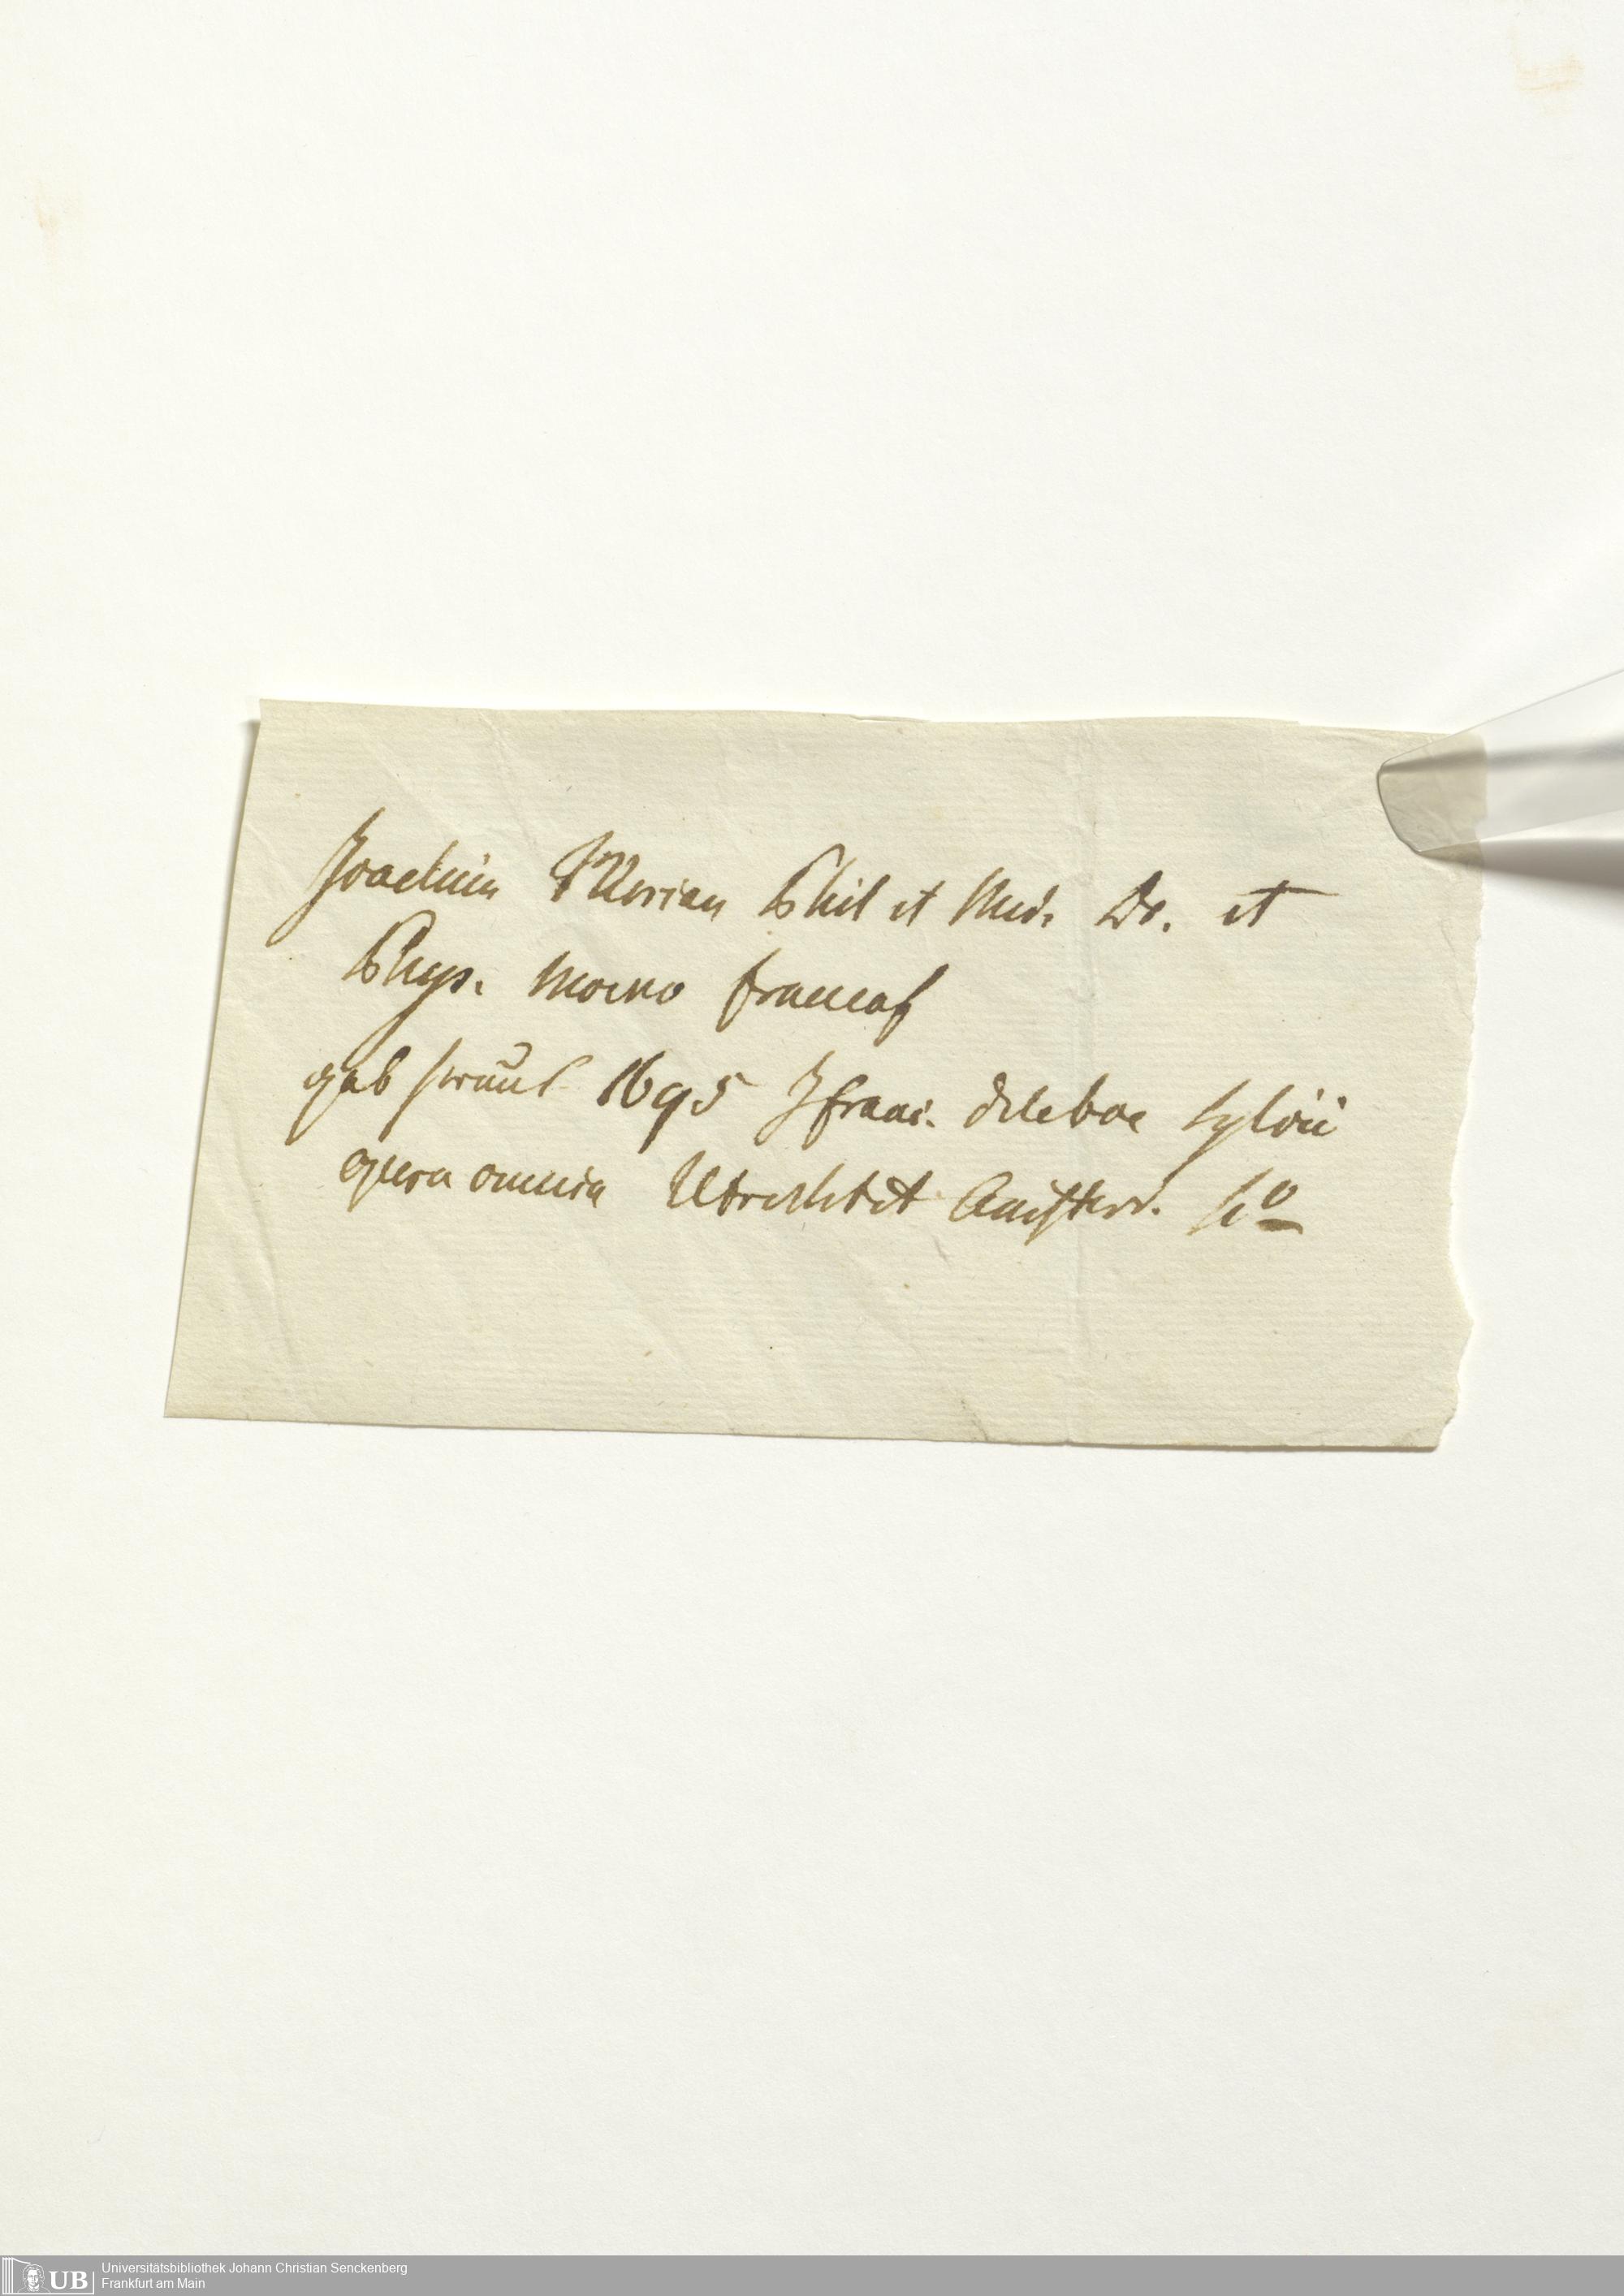 Joachim Merian Phil et Med. Dr. et
Phys. Moeno francof
gab heraus 1695 franc. deleboe Sylvii
opera omnia Utrecht et Amsterd.
Universitätsbibliothek Johann Christian Senckenberg
UB Frankfurt am Main